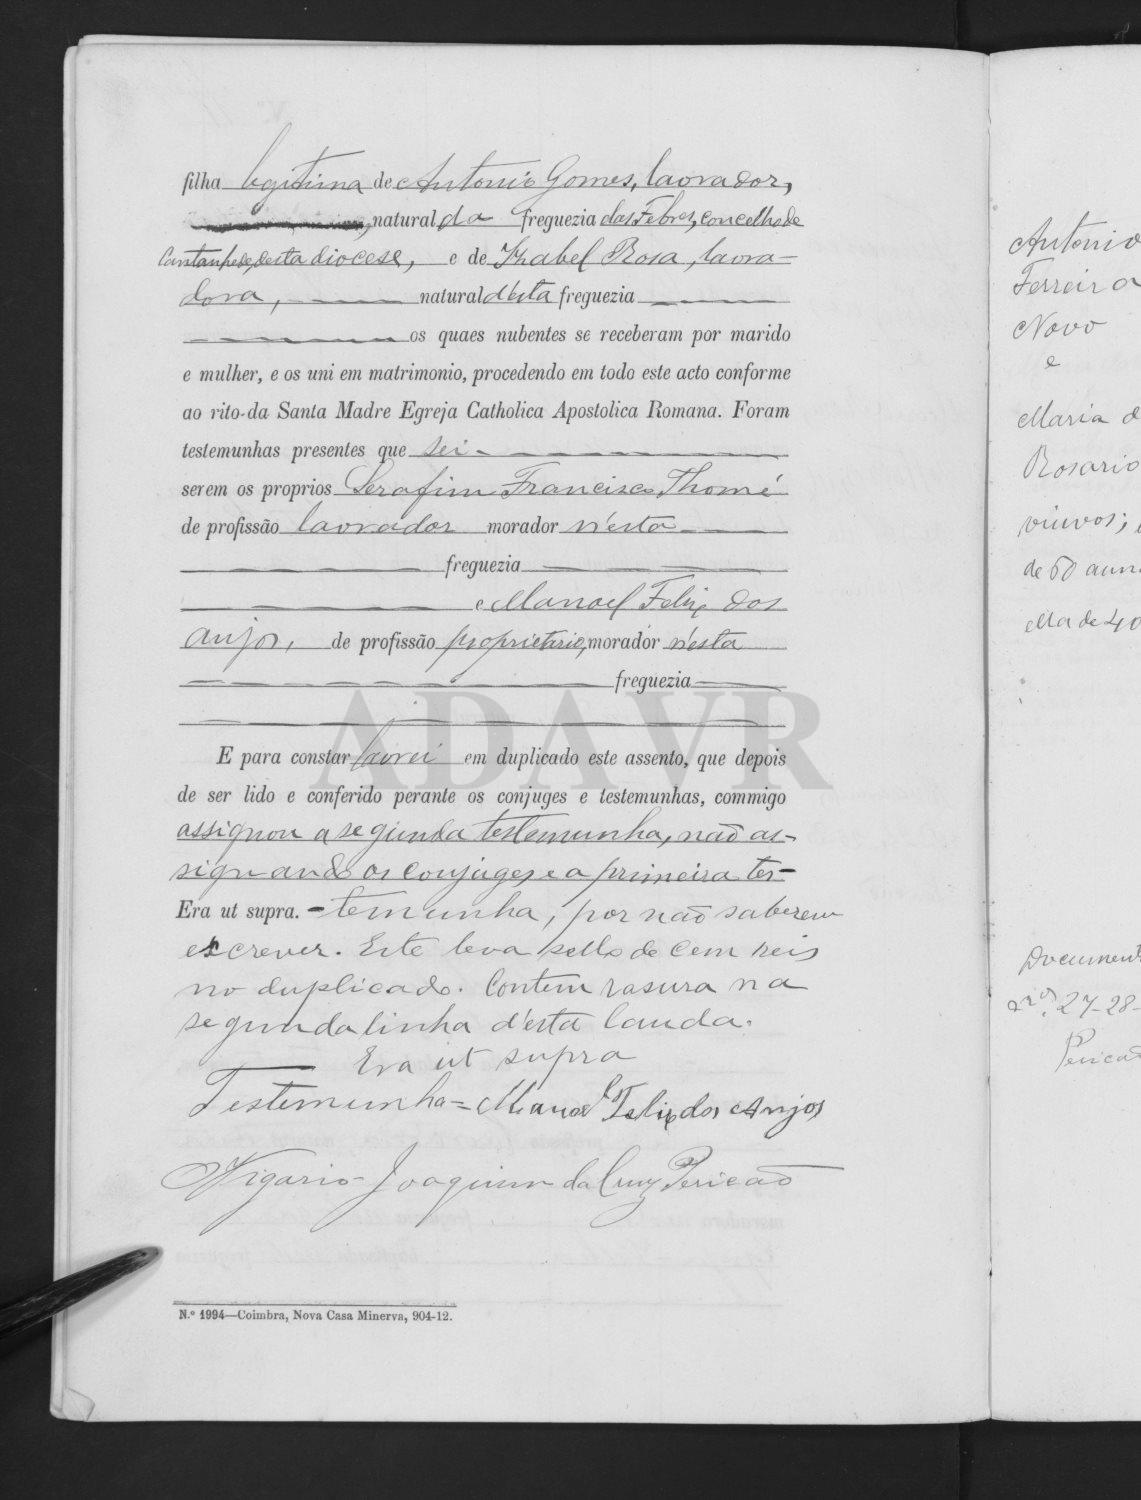 filha legitima de Antonio Gomes, lavrador,
, natural da freguezia das Febres, concelho de
Cantanhede, desta diocese, e de Izabel Rosa, lavra-
dora, natural d'esta freguezia
os quaes nubentes se receberam por marido
e mulher, e os uni em matrimonio, procedendo em todo este acto conforme
ao rito da Santa Madre Egreja Catholica Apostolica Romana. Foram
testemunhas presentes que sei
serem os proprios Serafim Francisco Thomé
de profissão lavrador morador n'esta
freguezia
e Manoel Felix dos
Anjos, de profissão proprietario, morador n'esta
freguezia
E para constar lavrei em duplicado este assento, que depois
de ser lido e conferido perante os conjuges e testemunhas, commigo
assignou a segunda testemunha, não as-
signando os conjuges e a primeira tes-
Era ut supra. - temunha, por não saberem
escrever. Este leva sello de cem reis
no duplicado. Contem rasura na
segunda linha d'esta lauda.
Era ut supra
Testemunha = Manoel Felix dos Anjos
O Vigario - Joaquim da Cruz Pericão
N.º 1994—Coimbra, Nova Casa Minerva, 904-12.
ADAVR
Antonio
Ferreira
Novo
e
Maria d
Rosario
viuvos;
de 60 ann
ella de 40
Document
nºs 27-28-
Pericão